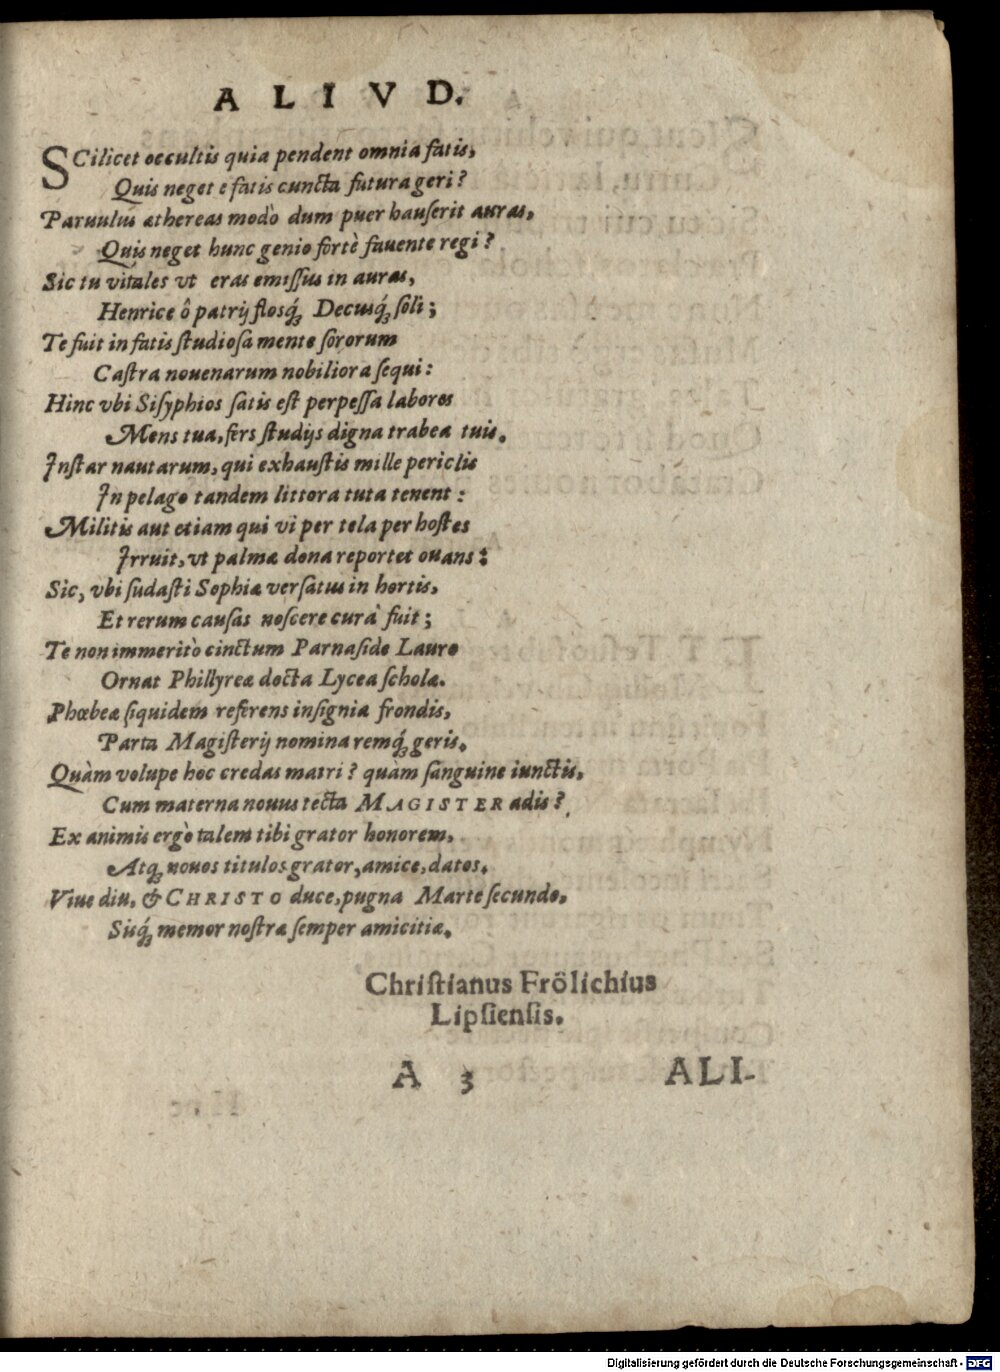 ALIVD.
SCilicet occultis quia pendent omnia fatis,
Quis neget e fatis cuncta futura geri?
Paruulus æthereas modò dum puer hauſerit auras,
Quis neget hunc genio fortè fauente regi?
Sic tu vitales vt eras emiſſus in auras,
Henrice ô patrij flosq́ꝫ Decusq́ꝫ ſoli;
Te fuit in fatis ſtudioſa mente ſororum
Caſtra nouenarum nobiliora ſequi:
Hinc vbi Siſyphios ſatis eſt perpeſſa labores
Mens tua, fers ſtudijs digna trabea tuis.
Inſtar nautarum, qui exhauſtis mille periclis
In pelago tandem littora tuta tenent:
Militis aut etiam qui vi per tela per hoſtes
Irruit, vt palmæ dona reportet ouans:
Sic, vbi ſudaſti Sophiæ verſatus in hortis,
Et rerum cauſas noſcere cura fuit;
Te non immeritò cinctum Parnaſide Lauro
Ornat Phillyreæ docta Lycea ſcholæ.
Phœbeæ ſiquidem referens inſignia frondis,
Parta Magiſterij nomina remq́ꝫ geris.
Quàm volupe hoc credas matri? quàm ſanguine iunctis,
Cum materna nouus tecta MAGISTER adis?
Ex animis ergò talem tibi grator honorem,
Atqꝫ nouos titulos grator, amice, datos.
Viue diu, & CHRISTO duce, pugna Marte ſecundo,
Sisq́ꝫ memor noſtræ ſemper amicitiæ.
Chriſtianus Frölichius
Lipſienſis.
A 3 ALI-
Digitalisierung gefördert durch die Deutsche Forschungsgemeinschaft - DFG